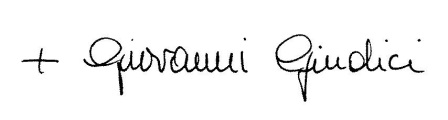 + Giovanni Giudici